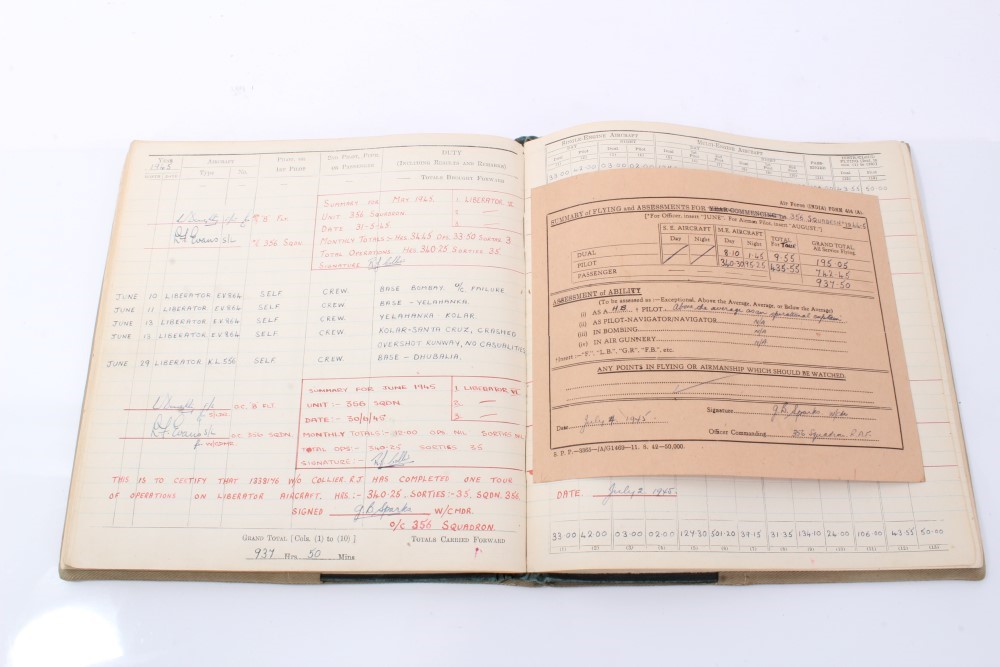 YEAR
AIRCRAFT
PILOT, OR
1ST PILOT
2ND PILOT, PUPIL
OR PASSENGER
DUTY
(INCLUDING RESULTS AND REMARKS)
1945
Type
No.
TOTALS BROUGHT FORWARD
SUMMARY FOR MAY 1945. 1. LIBERATOR VI
UNIT 356 SQUADRON 2. —
DATE 31-5-45 3. —
MONTHLY TOTALS:- HRS 34.45 OPS 33.50 SORTIES 3
TOTAL OPERATIONS HRS 340.25 SORTIES 35.
SIGNATURE
O/C 'B' FLT
O/C 356 SQDN.
JUNE 10 LIBERATOR EV864 SELF CREW. BASE BOMBAY. W/C FAILURE
JUNE 11 LIBERATOR EV864. SELF CREW. BASE - YELAHANKA.
JUNE 13 LIBERATOR EV864 SELF CREW. YELAHANKA - KOLAR
JUNE 13 LIBERATOR EV864 SELF CREW. KOLAR-SANTA CRUZ, CRASHED
OVERSHOT RUNWAY, NO CASUALTIES
JUNE 29 LIBERATOR KL556 SELF CREW. BASE - DHUBALIA.
SUMMARY FOR JUNE 1945 1. LIBERATOR VI.
UNIT :- 356 SQDN. 2. —
DATE :- 30/6/45 3. —
MONTHLY TOTALS:- OPS NIL SORTIES NIL
TOTAL OPS:- 340-25 SORTIES 35
SIGNATURE :-
O.C. 'B' FLT.
O.C. 356 SQDN.
THIS IS TO CERTIFY THAT 1338176 W/O COLLIER. R.J HAS COMPLETED ONE TOUR
OF OPERATIONS ON LIBERATOR AIRCRAFT. HRS:- 340.25. SORTIES:-35. SQDN. 356
SIGNED G B Sparks W/CMDR.
O/C 356 SQUADRON.
GRAND TOTAL [Cols. (1) to (10)]
937 Hrs 50 Mins
TOTALS CARRIED FORWARD
SINGLE-ENGINE AIRCRAFT
MULTI-ENGINE AIRCRAFT
DAY
NIGHT
43.55 50.00
AIR FORCE (INDIA) FORM 414 (A).
SUMMARY of FLYING and ASSESSMENTS FOR YEAR COMMENCING 356 SQUADRON
[*For Officer, insert "JUNE"; For Airman Pilot, insert "AUGUST".]
S. E. AIRCRAFT M.E. AIRCRAFT TOTAL For Tour GRAND TOTAL All Service Flying
Day Night Day Night
DUAL 8.10 1.45 9.55 195.05
PILOT 340.30 95.25 435.55 742.45
PASSENGER — — 937.50
ASSESSMENT of ABILITY
(To be assessed as :—Exceptional, Above the Average, Average, or Below the Average)
(i) AS A H.B. † PILOT Above the average as an operational captain
(ii) AS PILOT-NAVIGATOR/NAVIGATOR N/A
(iii) IN BOMBING
(iv) IN AIR GUNNERY N/A
†Insert :—"F.", "L.B.", "G.R." "F.B.", etc.
ANY POINTS IN FLYING OR AIRMANSHIP WHICH SHOULD BE WATCHED.
Date July 1945. Signature G B Sparks W/Cdr
Officer Commanding 356 Squadron R.A.F.
DATE. July 2, 1945.
33.00 42.00 03.00 02.00 127.30 501.20 37.15 31.35 134.10 26.00 106.00 43.55 50.00
(1) (2) (3) (4) (5) (6) (7) (8) (9) (10) (11) (12) (13)